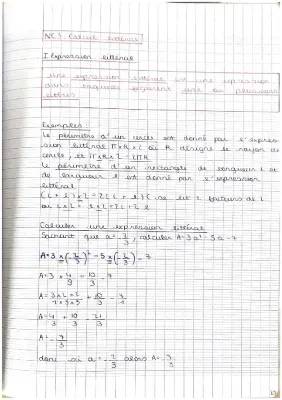 NC3 Calcul littéral
I Expression littérale
Une expression littérale est une expression
dans laquelle figurent une ou plusieurs
lettres
Exemples:
Le périmètre d'un cercle est donné par l'expres
sion littérale π×R×2 où R désigne le rayon du
cercle, et π×R×2 = 2πR
Le périmètre d'un rectangle de longueur L et
de largeur l est donné par l'expression
littéral
(L + l)×2 = 2L + 2l
ou L×2 + l×2 = 2L + 2l
Calculer une expression littérale
Sachant que a = -2/3, calculer A = 3a² - 5a - 7
A = 3×(-2/3)² - 5×(-2/3) - 7
A = 3 × 4/9 + 10/3 - 7
A = 3×2×2/3×3 + 10/3 - 7/1
A = 4/3 + 10/3 - 21/3
A = -7/3
donc si a = -2/3 alors A =